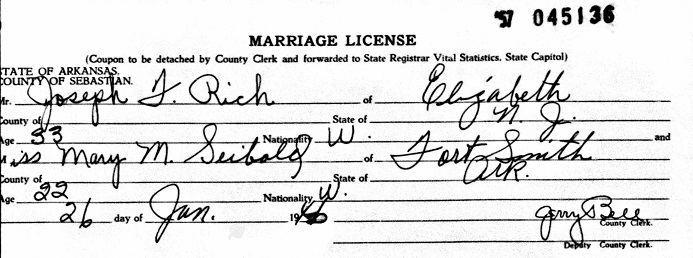 '57 045136
MARRIAGE LICENSE
(Coupon to be detached by County Clerk and forwarded to State Registrar Vital Statistics, State Capitol)
STATE OF ARKANSAS,
COUNTY OF SEBASTIAN.
Mr. Joseph F. Rich of Elizabeth
County of State of N. J.
Age 33 Nationality W. and
Miss Mary M. Seibold of Fort Smith
County of State of Ark.
Age 22 Nationality W.
26 day of Jan. 19
Gerry Bell
County Clerk.
Deputy County Clerk.